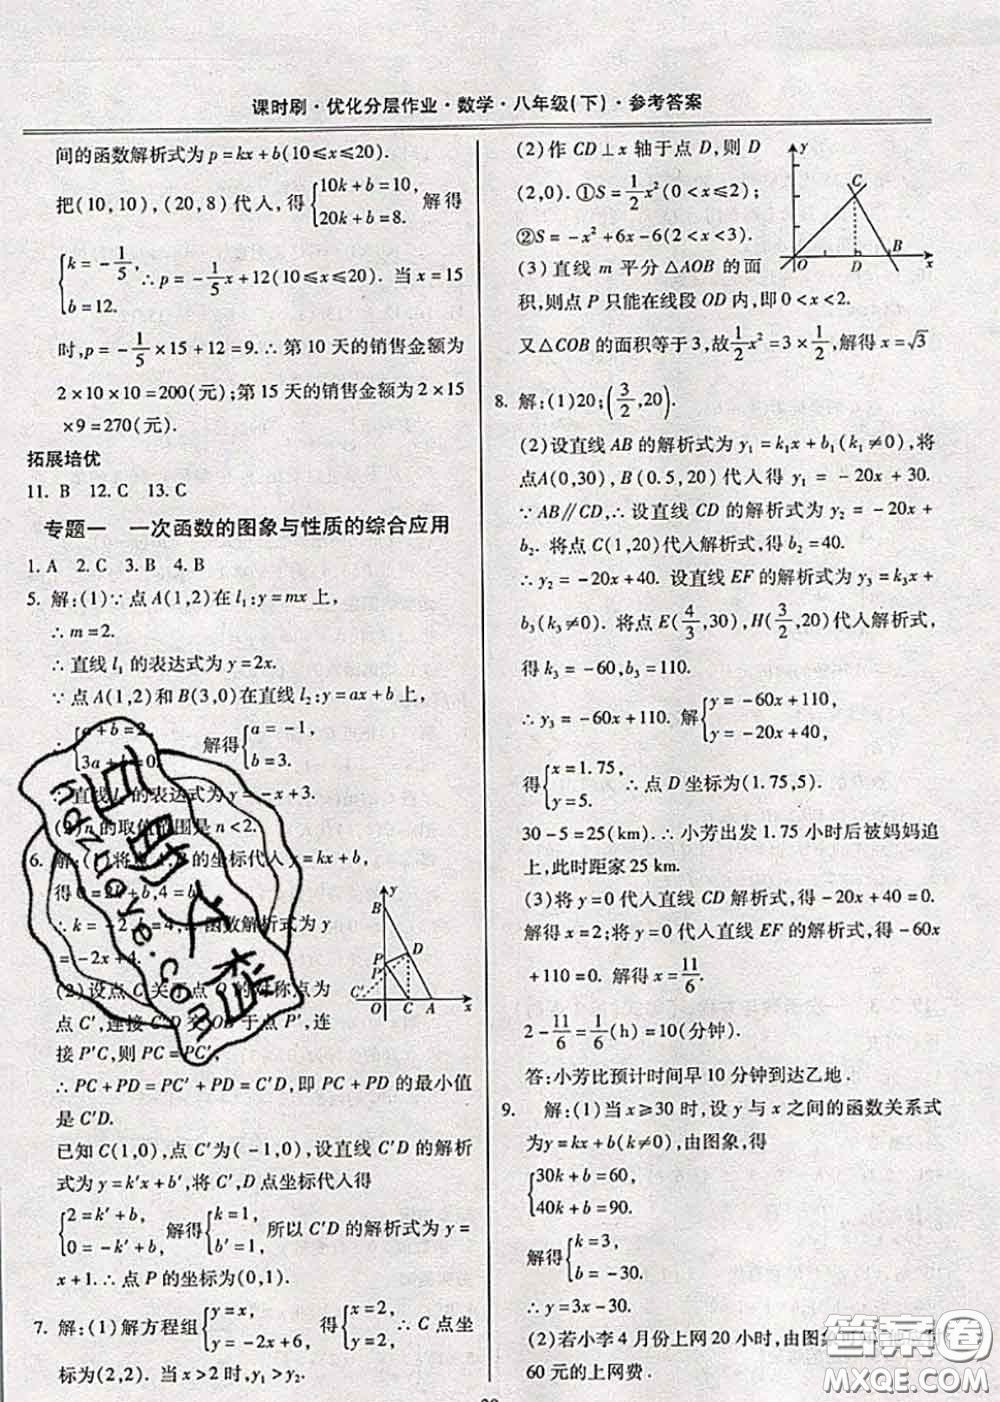 课时刷·优化分层作业·数学·八年级(下)·参考答案
间的函数解析式为p=kx+b(10≤x≤20).
把(10,10),(20,8)代入,得{10k+b=10, 20k+b=8. 解得
{k=-1/5, b=12. ∴p=-1/5x+12(10≤x≤20). 当x=15
时,p=-1/5×15+12=9.∴第10天的销售金额为
2×10×10=200(元);第15天的销售金额为2×15
×9=270(元).
拓展培优
11. B 12. C 13. C
专题一 一次函数的图象与性质的综合应用
1. A 2. C 3. B 4. B
5. 解:(1)∵点A(1,2)在l₁:y=mx上,
∴m=2.
∴直线l₁的表达式为y=2x.
∵点A(1,2)和B(3,0)在直线l₂:y=ax+b上,
∴{a+b=2, 3a+b=0. 解得{a=-1, b=3.
∴直线l₂的表达式为y=-x+3.
(2)n的取值范围是n<2.
6. 解:(1)将点A,B的坐标代入y=kx+b,
得0=2k+b,4=b,
∴k=-2,b=4,∴函数解析式为y
=-2x+4.
(2)设点C关于点O的对称点为
点C′,连接C′D交OB于点P′,连
接P′C,则PC=PC′,
∴PC+PD=PC′+PD=C′D,即PC+PD的最小值
是C′D.
已知C(1,0),点C′为(-1,0),设直线C′D的解析
式为y=k′x+b′,将C′、D点坐标代入得
{2=k′+b′, 0=-k′+b′, 解得{k=1, b′=1. 所以C′D的解析式为y=
x+1.∴点P的坐标为(0,1).
y B D P P′ C′ O C A x
7. 解:(1)解方程组{y=x, y=-2x+6, 得{x=2, y=2. ∴C点坐
标为(2,2). 当x>2时,y₁>y₂.
(2)作CD⊥x轴于点D,则D
(2,0).①S=1/2x²(0<x≤2);
②S=-x²+6x-6(2<x<3).
(3)直线m平分△AOB的面
积,则点P只能在线段OD内,即0<x<2.
又△COB的面积等于3,故1/2x²=3×1/2,解得x=√3
y C O D B x
8. 解:(1)20;(3/2,20).
(2)设直线AB的解析式为y₁=k₁x+b₁(k₁≠0),将
点A(0,30),B(0.5,20)代入得y₁=-20x+30.
∵AB∥CD,∴设直线CD的解析式为y₂=-20x
+b₂. 将点C(1,20)代入解析式,得b₂=40.
∴y₂=-20x+40. 设直线EF的解析式为y₃=k₃x+
b₃(k₃≠0). 将点E(4/3,30),H(3/2,20)代入解析式,
得k₃=-60,b₃=110.
∴y₃=-60x+110. 解{y=-60x+110, y=-20x+40,
得{x=1.75, y=5. ∴点D坐标为(1.75,5).
30-5=25(km).∴小芳出发1.75小时后被妈妈追
上,此时距家25 km.
(3)将y=0代入直线CD解析式,得-20x+40=0.
解得x=2;将y=0代入直线EF的解析式,得-60x
+110=0. 解得x=11/6.
2-11/6=1/6(h)=10(分钟).
答:小芳比预计时间早10分钟到达乙地.
9. 解:(1)当x≥30时,设y与x之间的函数关系式
为y=kx+b(k≠0),由图象,得
{30k+b=60, 40k+b=90.
解得{k=3, b=-30.
∴y=3x-30.
(2)若小李4月份上网20小时,由图象
60元的上网费.
答案卷
MXQE.COM